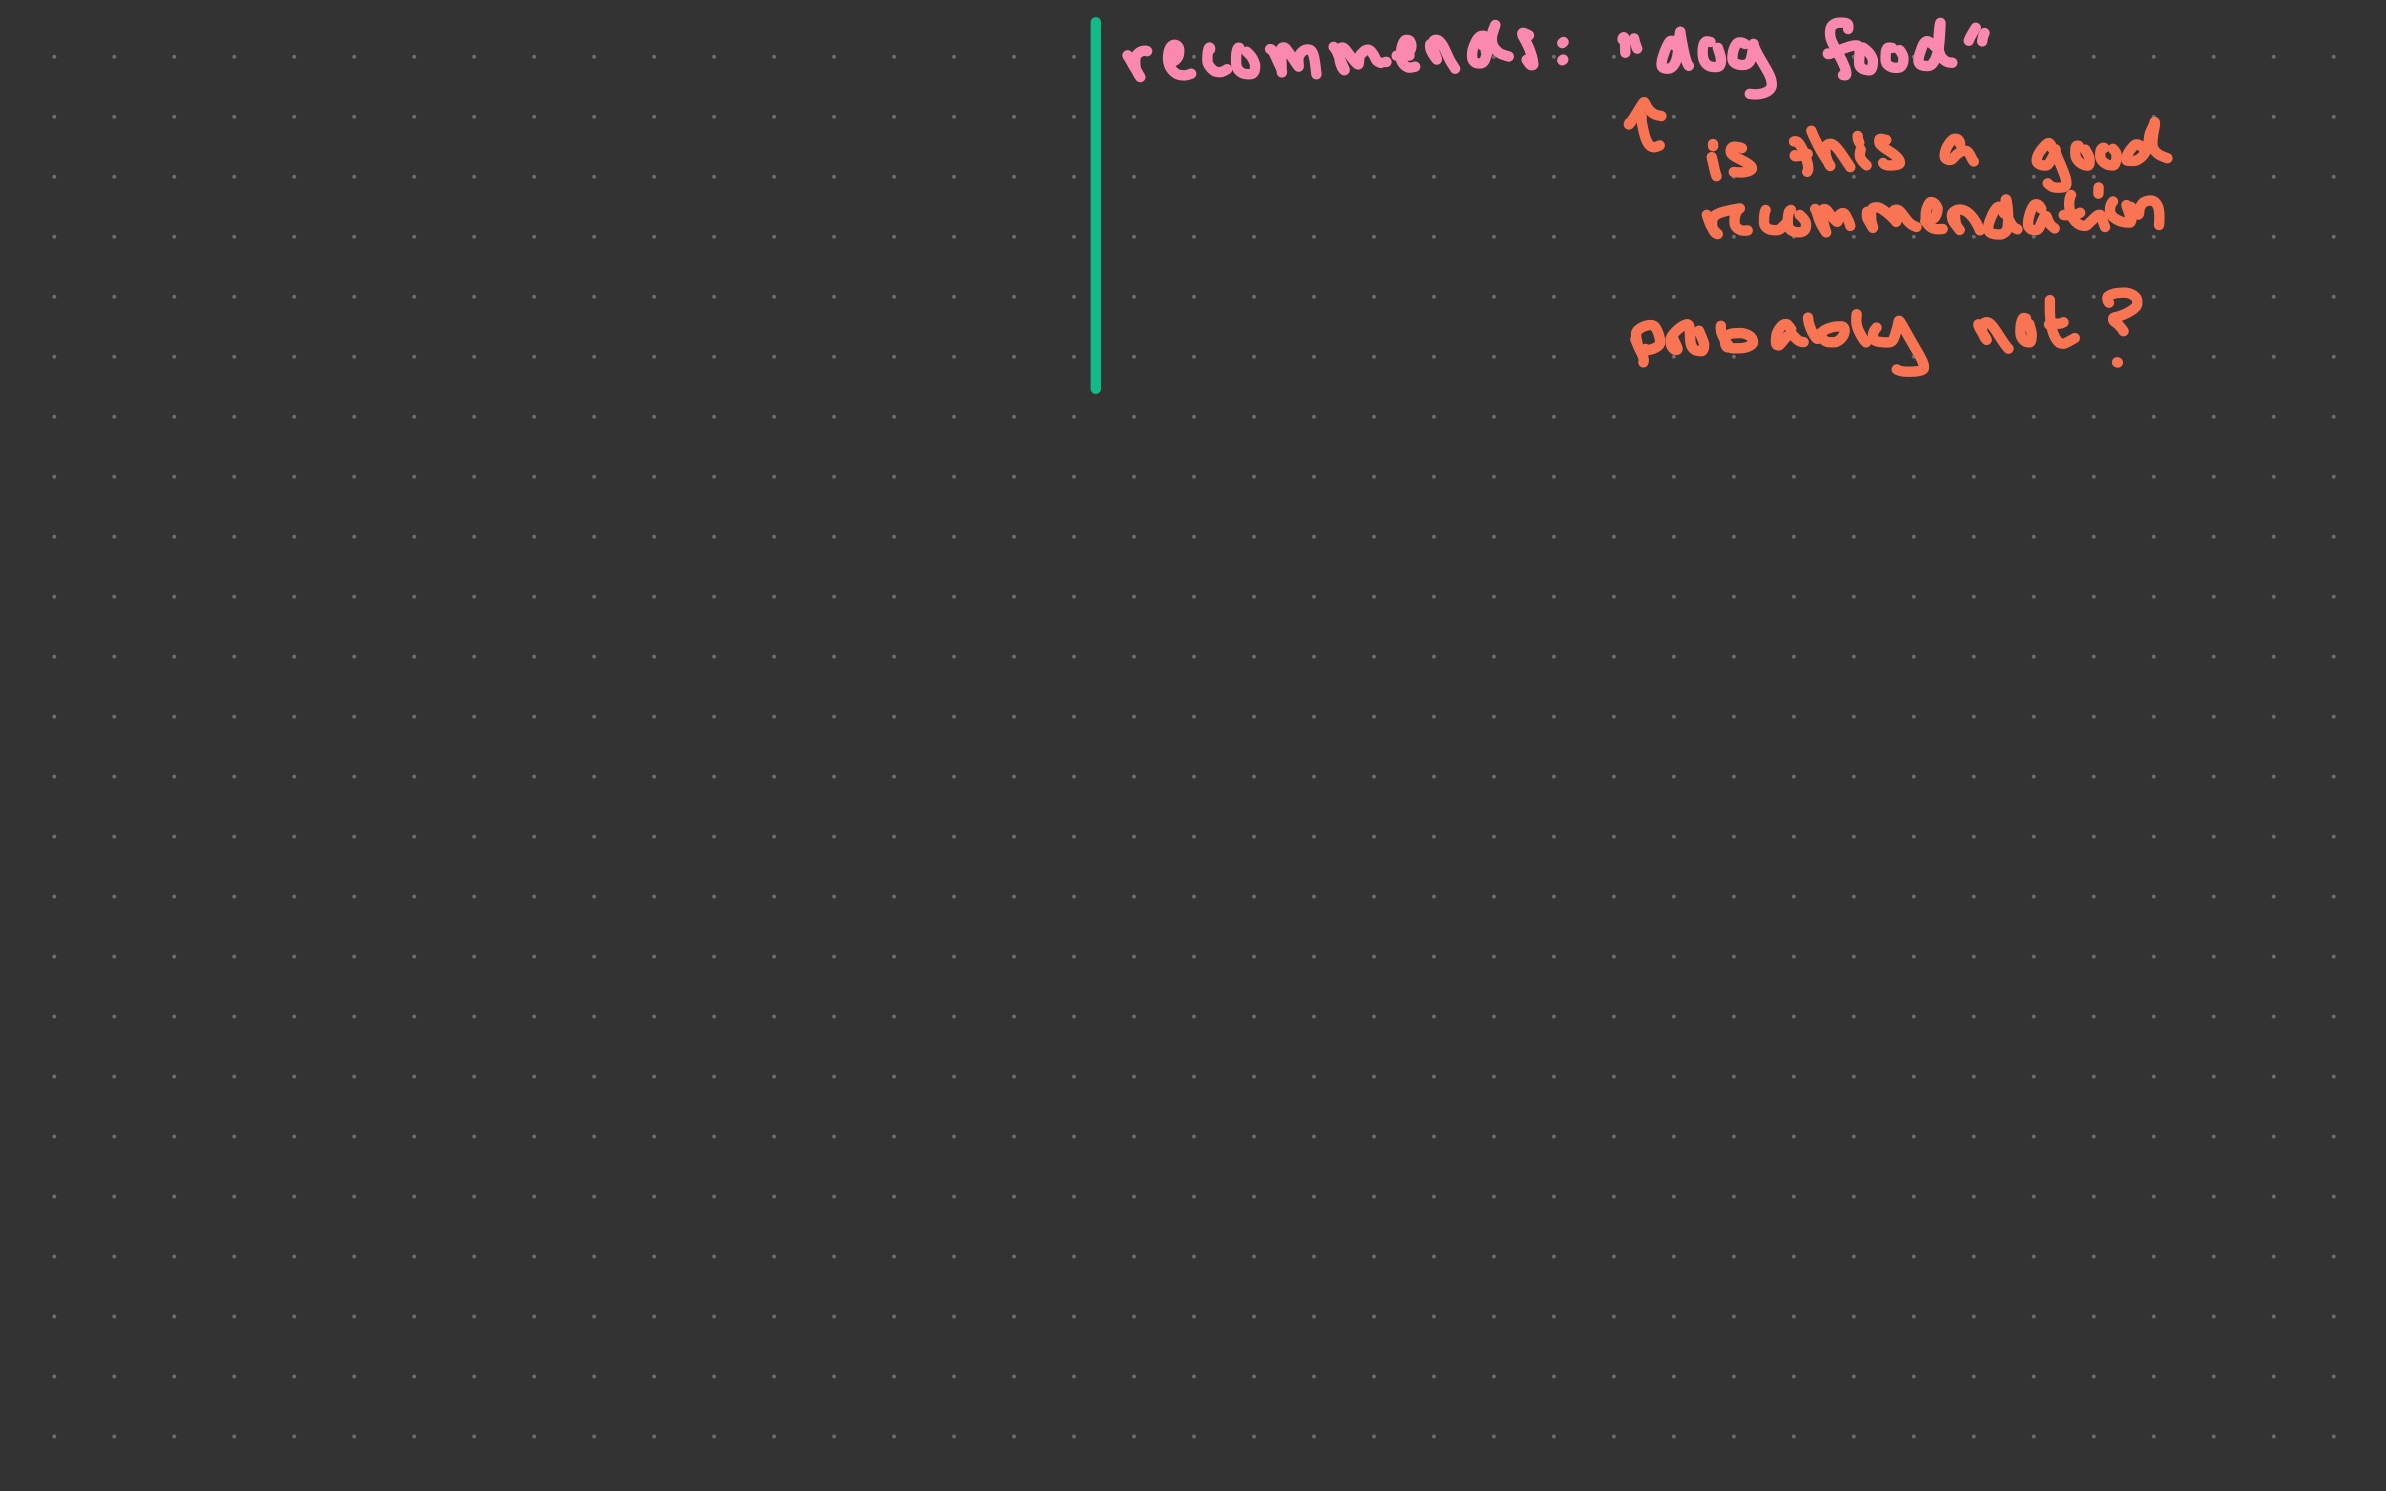 recommends: "dog food"
is this a good
recommendation
probably not?